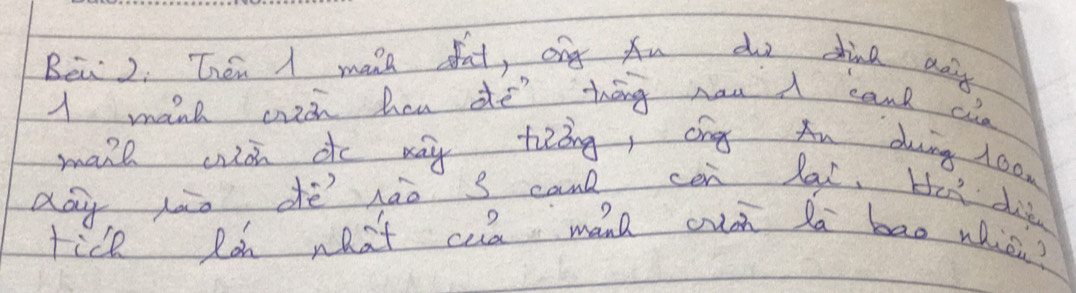 Bài 2: Trên 1 mảnh đất, ông An dự định xây
1 mảnh vườn hcn để trồng rau 1 cạnh của
mảnh vườn đc xây tường, ông An dùng 100m
dây rào để rào 3 cạnh còn lại. Hỏi diện
tích lớn nhất của mảnh vườn là bao nhiêu?